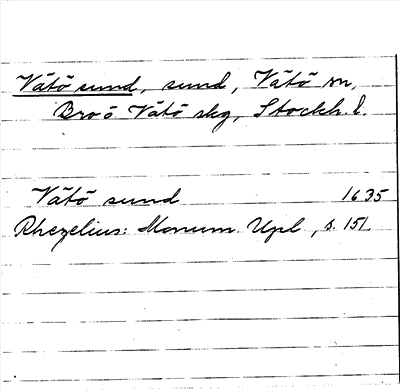 Vätö sund, sund, Vätö sn,
Bro o Vätö skg, Stockh. l.
Vätö sund 1635
Rhezelius: Monum. Upl, s. 151